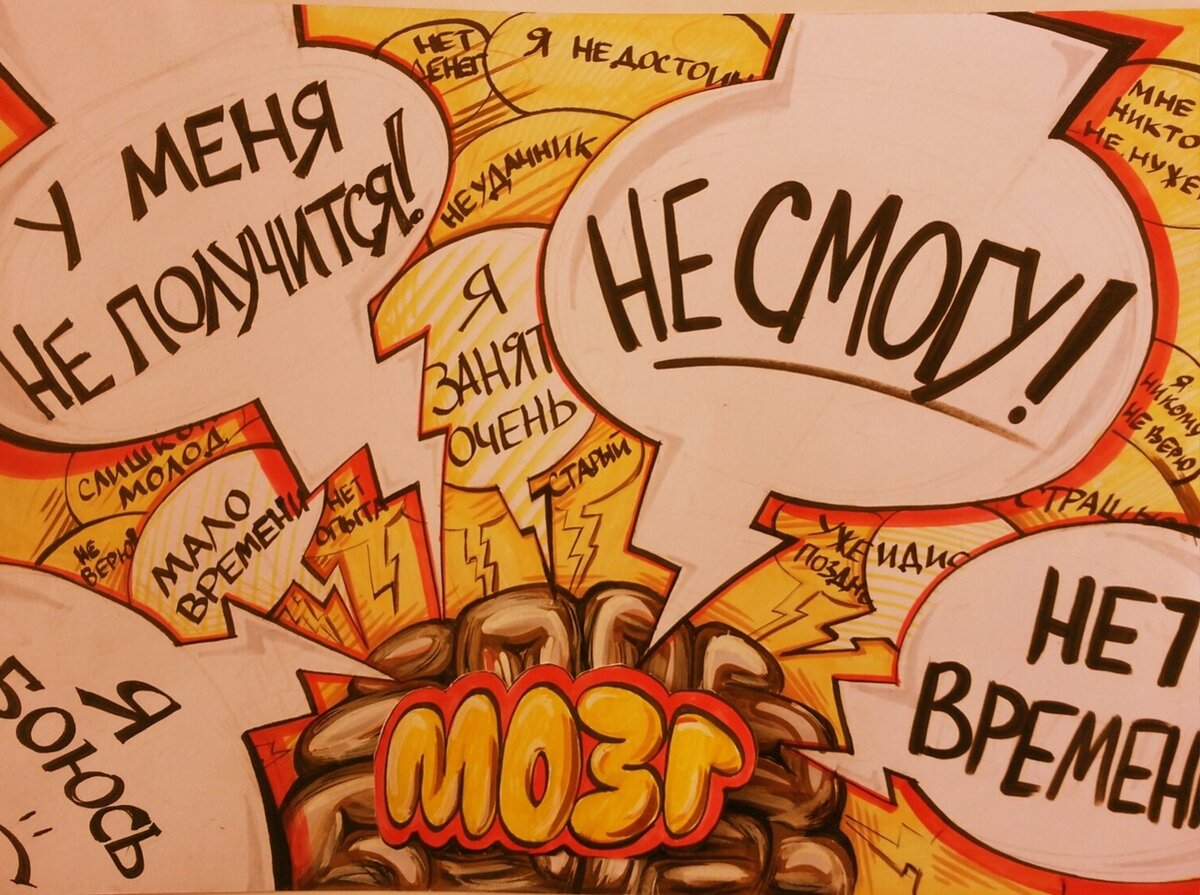 НЕТ
ДЕНЕГ
Я НЕДОСТОИН
МНЕ
НИКТО
НЕ НУЖЕ
У МЕНЯ
НЕ ПОЛУЧИТСЯ!
НЕУДАЧНИК
НЕ СМОГУ!
Я
ЗАНЯТ
ОЧЕНЬ
Я
НИКОМУ
НЕ ВЕРЮ
СЛИШКОМ
МОЛОД
СТАРЫЙ
МАЛО
ВРЕМЕНИ
НЕТ
ОПЫТА
НЕ
ВЕРЮ
УЖЕ
ПОЗДН
ИДИО
СТРАШ
НЕТ
ВРЕМЕН
Я
БОЮСЬ
:(
МОЗГ